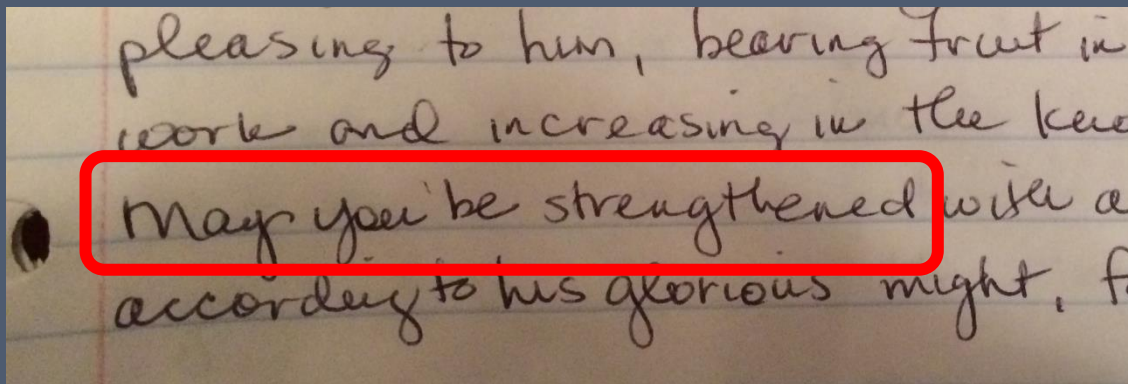 pleasing to him, bearing fruit in
work and increasing in the
May you be strengthened with a
according to his glorious might,